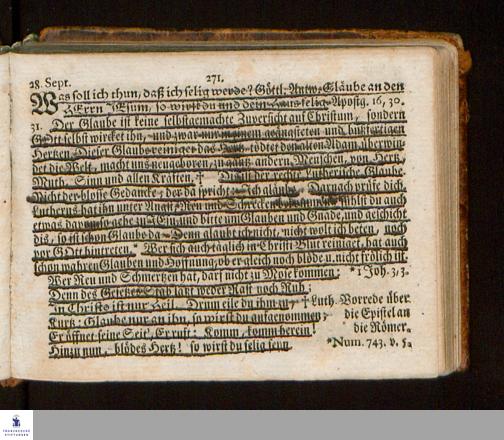 28. Sept. 271.
Was soll ich thun, daß ich selig werde? Göttl. Antw. Gläube an den
HErrn JEsum, so wirst du und dein Haus selig. Apostg. 16, 30.
31. Der Glaube ist keine selbstgemachte Zuversicht auf Christum, sondern
GOtt selbst wirket ihn, und zwar nur in einem geängsteten und bußfertigen
Hertzen. Dieser Glaube reiniget das Hertz, tödtet den alten Adam, überwin-
det die Welt, macht uns neugeboren, zu gantz andern Menschen, von Hertz,
Muth, Sinn und allen Kräften. † Das ist der rechte Lutherische Glaube.
Nicht der blosse Gedancke, der da spricht: Ich gläube. Darnach prüfe dich.
Lutherus hat ihn unter Angst, Noth und Schrecken Fühlst du auch
etwas davon, so gehe zu JEsu und bitte um Glauben und Gnade, und geschicht
dis, so ist schon Glaube da. Denn glaubt ich nicht, nicht wolt ich beten, noch
vor GOtt hintreten. * Wer sich auch täglich in Christi Blut reiniget, hat auch
schon wahren Glauben und Hoffnung, ob er gleich noch blöde u. nicht frölich ist.
Wer Reu und Schmertzen hat, darf nicht zu Mose kommen: * 1 Joh. 3, 3.
Denn des Gesetzes Stab läst weder Rast noch Ruh;
in Christo ist nur Heil. Drum eile du ihm zu; † Luth. Vorrede über
Kurtz: Glaube nur an ihn, so wirst du aufgenommen; die Epistel an
Er öffnet seine Seit, Er ruft: Komm, komm herein! die Römer.
Hinzu nun, blödes Hertz! so wirst du selig seyn. * Num. 743. v. 5.
FRANCKESCHE
STIFTUNGEN